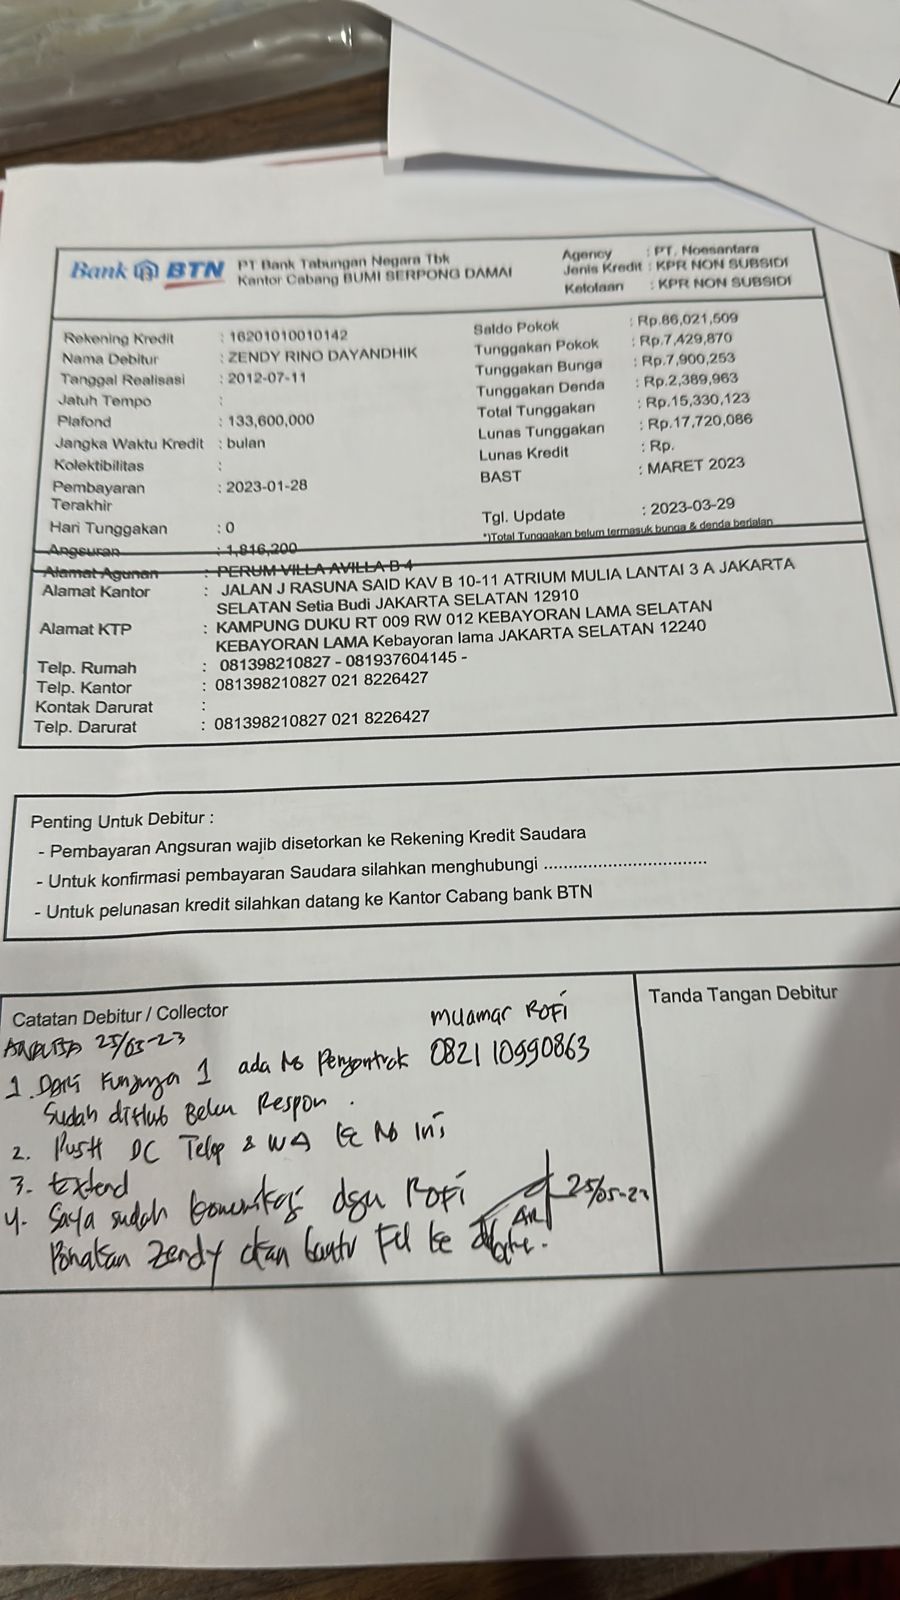 Bank BTN
PT Bank Tabungan Negara Tbk
Kantor Cabang BUMI SERPONG DAMAI
Agency : PT. Noesantara
Jenis Kredit : KPR NON SUBSIDI
Kelolaan : KPR NON SUBSIDI
Rekening Kredit : 16201010010142
Nama Debitur : ZENDY RINO DAYANDHIK
Tanggal Realisasi : 2012-07-11
Jatuh Tempo :
Plafond : 133,600,000
Jangka Waktu Kredit : bulan
Kolektibilitas :
Pembayaran Terakhir : 2023-01-28
Hari Tunggakan : 0
Angsuran : 1,816,200
Saldo Pokok : Rp.86,021,509
Tunggakan Pokok : Rp.7,429,870
Tunggakan Bunga : Rp.7,900,253
Tunggakan Denda : Rp.2,389,963
Total Tunggakan : Rp.15,330,123
Lunas Tunggakan : Rp.17,720,086
Lunas Kredit : Rp.
BAST : MARET 2023
Tgl. Update : 2023-03-29
*)Total Tunggakan belum termasuk bunga & denda berjalan
Alamat Agunan : PERUM VILLA AVILLA B 4
Alamat Kantor : JALAN J RASUNA SAID KAV B 10-11 ATRIUM MULIA LANTAI 3 A JAKARTA
SELATAN Setia Budi JAKARTA SELATAN 12910
Alamat KTP : KAMPUNG DUKU RT 009 RW 012 KEBAYORAN LAMA SELATAN
KEBAYORAN LAMA Kebayoran lama JAKARTA SELATAN 12240
Telp. Rumah : 081398210827 - 081937604145 -
Telp. Kantor : 081398210827 021 8226427
Kontak Darurat :
Telp. Darurat : 081398210827 021 8226427
Penting Untuk Debitur :
- Pembayaran Angsuran wajib disetorkan ke Rekening Kredit Saudara
- Untuk konfirmasi pembayaran Saudara silahkan menghubungi .................................
- Untuk pelunasan kredit silahkan datang ke Kantor Cabang bank BTN
Catatan Debitur / Collector
Tanda Tangan Debitur
Muamar Rofi
25/05-23
1. Dari Kunjungan 1 ada No Pengontrak 082110990863
Sudah diHub Belum Respon.
2. Push DC Telep & WA ke No Ini
3. Extend
4. Saya sudah komunikasi dgn Rofi
Ponakan Zendy akan bantu ke
25/05-23